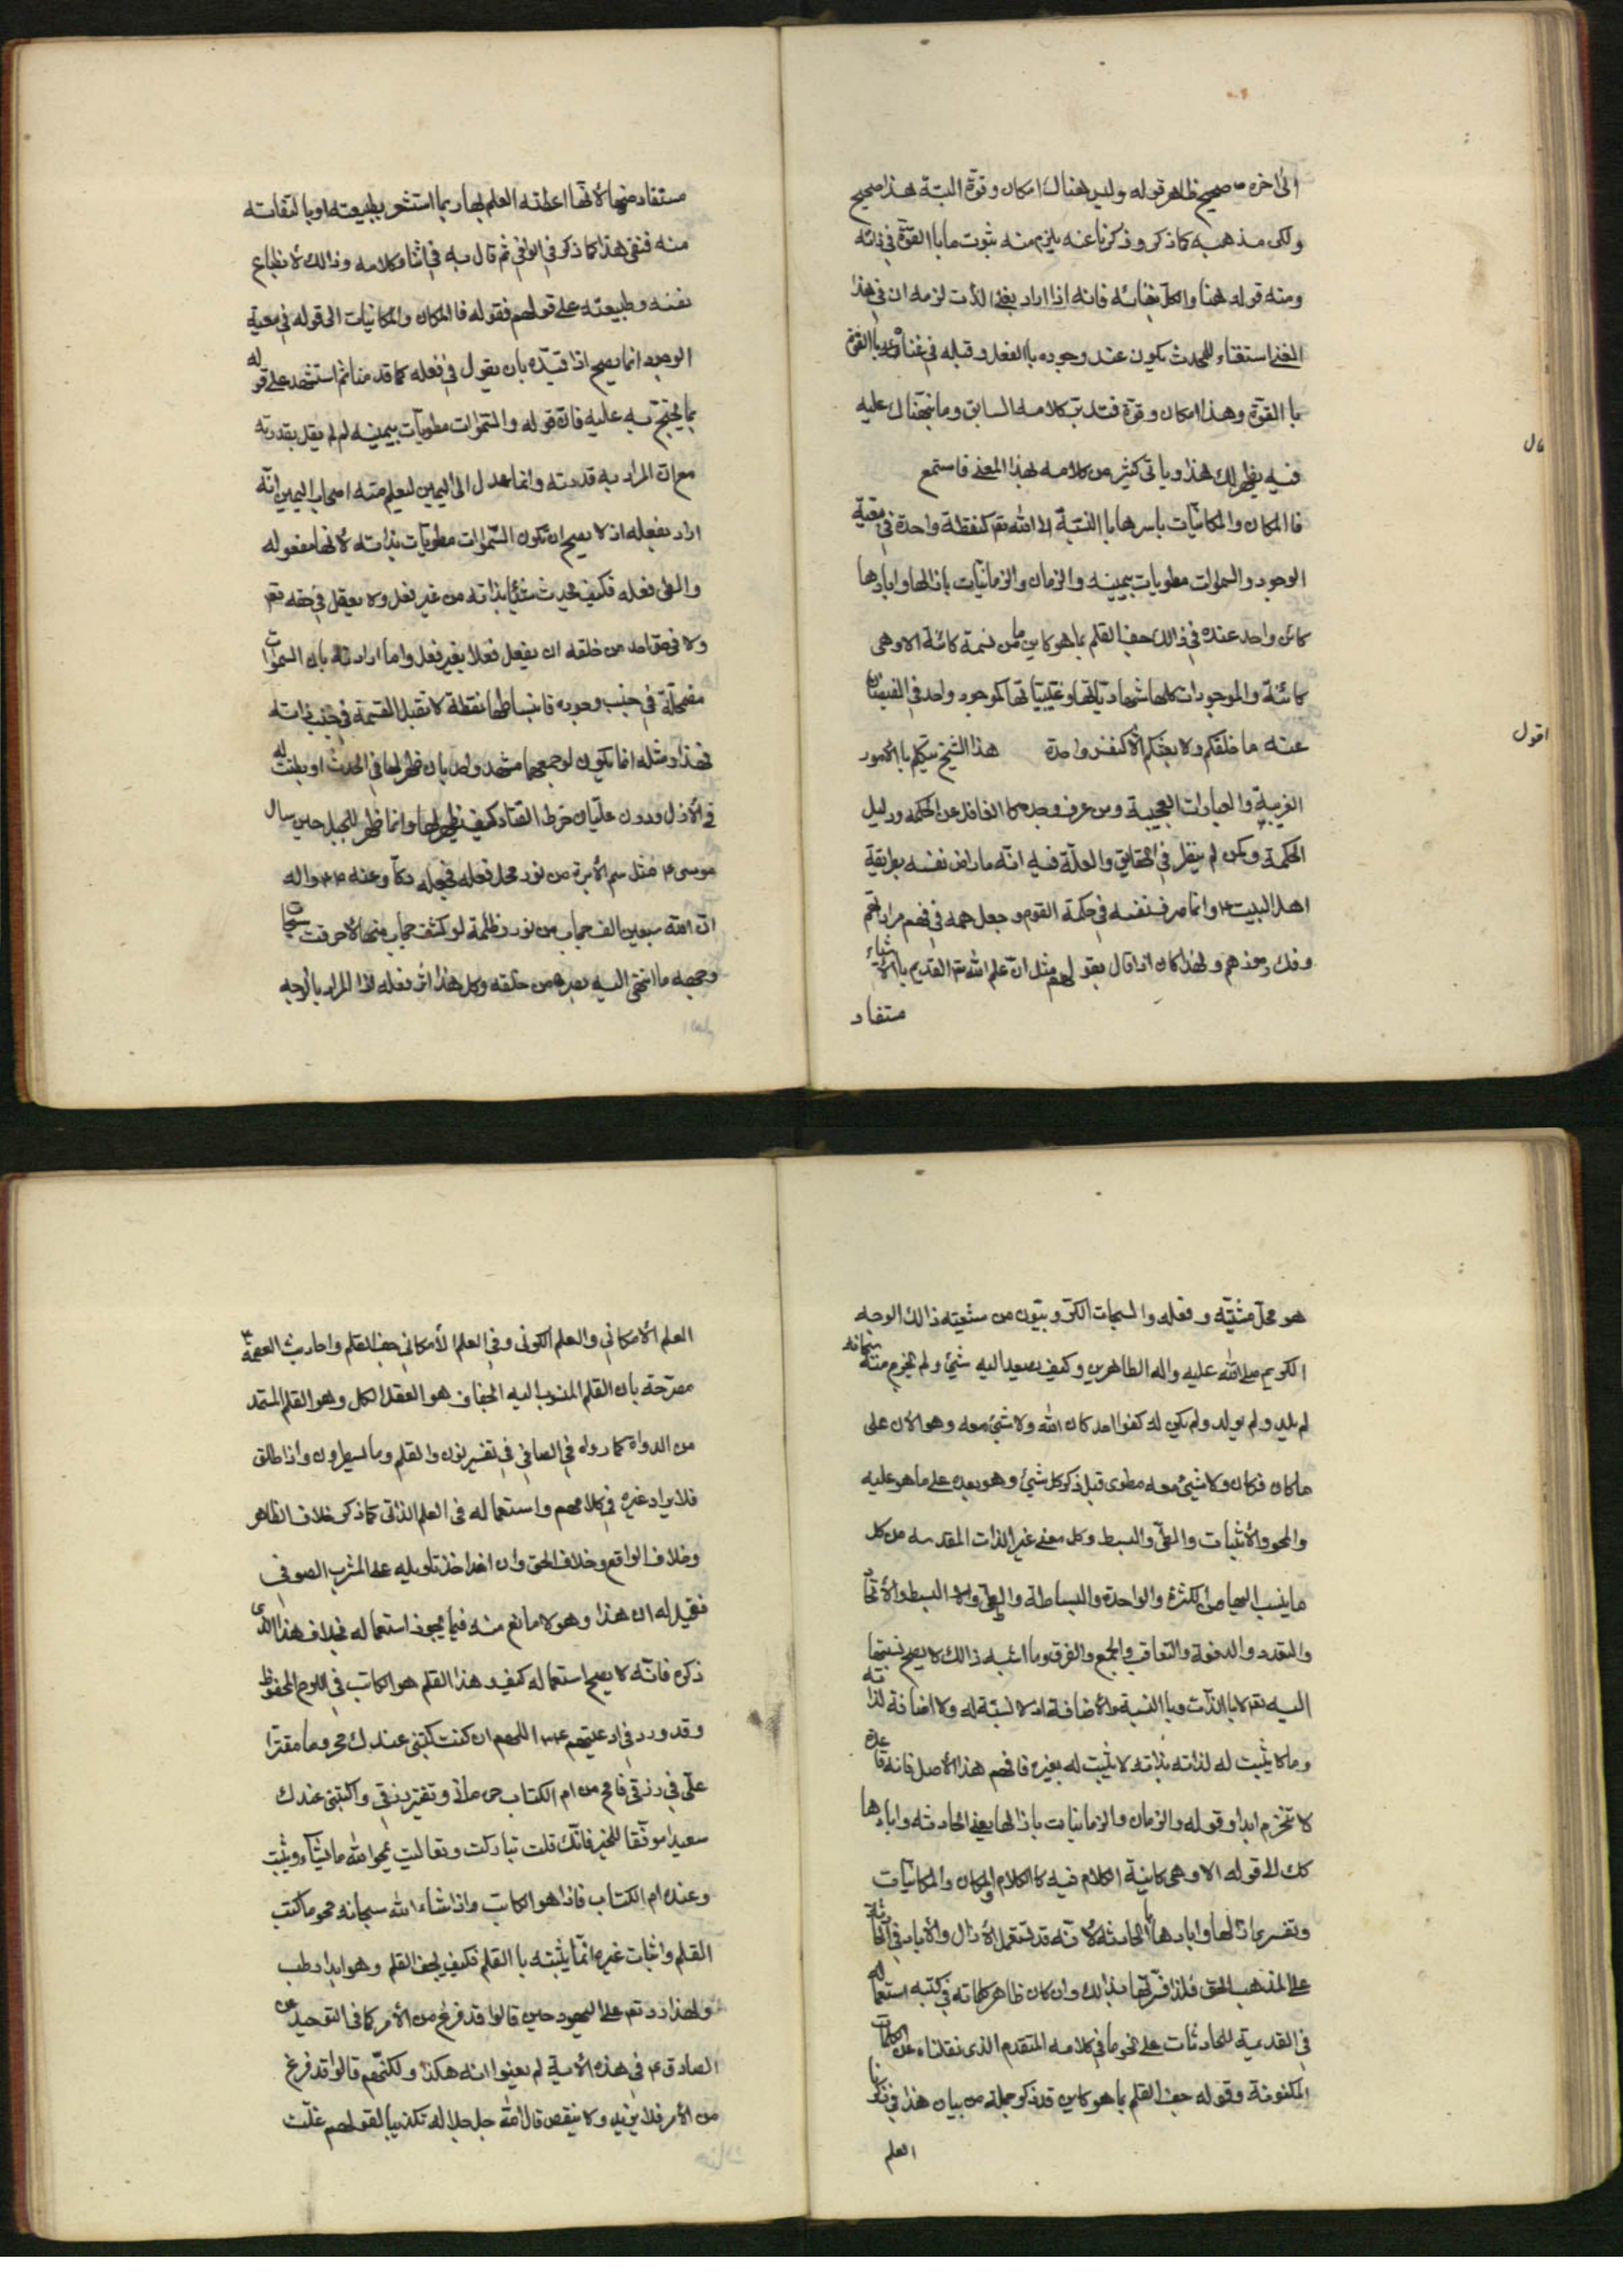 الى اخره صحيح ظاهر قوله وليس هناك امكان وقوة البتة هذا صحيح
ولكن مذهبه كما ذكر وذكرنا عنه يلزم منه ثبوت ما بالقوة في ذاته
ومنه قوله هنا والكل بغنائه فانه اذا اراد بغنى الذات لزمه ان في هذا
الغنى استغناء للمحدث يكون عند وجوده باالفعل وقبله في غناه باالقوة
باالقوة وهذا امكان وقوة فتدبر كلامه السابق وما نبهناك عليه
قال
فيه يظهر لك هذا وياتي كثير من كلامه لهذا المعنى فاستمع
فاالمكان والمكانيات باسرها باالنسبة الى الله تعم كنقطة واحدة في معية
الوجود والسموات مطويات بيمينه والزمان والزمانيات بازالها وابادها
كان واحد عنده في ذالك جف القلم بما هو كاين ما من نسمة كائنة الا وهي
كائنة والموجودات كلها شهادياتها وغيبياتها كموجود واحد في الفيضان
اقول
عنه ما خلقكم ولا بعثكم الا كنفس واحدة هذا الشيخ يتكلم باالامور
الغريبة والعبارات العجيبة ومن عرف وجد كلام الغافل عن الحكمة ودليل
الحكمة ومن لم ينظر في الحقايق والعلة فيه انه ما راض نفسه بطريقة
اهل البيت ع وانما صرف نفسه في حكمة القوم وجعل همه في فهم مراداتهم
وفك رموزهم ولهذا كان اذا قال بقولهم مثل ان علم الله تعم القديم باالاشياء
مستفاد
مستفاد منها لانها اعطته العلم بها ربما استشعر بطبيعته او بالتفاته
منه فنفى هذا كما ذكر في الوافي ثم قال به في اثناء كلامه وذالك لانطباع
نفسه وطبيعته على قولهم فقوله فاالمكان والمكانيات الى قوله في معية
الوجود انما يصح اذا قيده بان يقول في فعله كما قدمنا ثم استشهد على قوله
بما يحتج به عليه فان قوله والسموات مطويات بيمينه لم لم يقل بقدرته
مع ان المراد به قدرته وانما عدل الى اليمين ليعلم منه اصحاب اليمين انه
اراد بفعله اذ لا يصح ان تكون السموات مطويات بذاته لانها مفعوله
والطي فعله فكيف يحدث شيئا بذاته من غير فعل ولا يعقل في حقه تعم
ولا في حق احد من خلقه ان يفعل فعلا بغير فعل واما ارادته بان السموات
مضمحلة في جنب وجوده فانبساطها نقطة لا تقبل القسمة في جنب ذاته
فهذا ومثله انما يكون لو جمعهما مشهد واحد بان ظهر لها في الحدث او بطنت له
في الازل ودون عليان خرط القتاد كيف يظهر لها وانما ظهر للجبل حين سال
موسى ع مثل سم الابرة من نور محل فعله فجعله دكا وعنه ص واله
ان لله سبعين الف حجاب من نور وظلمة لو كشف حجاب منها لاحرقت سبحات
وجهه ما انتهى اليه بصره من خلقه وكل هذا اثر فعله اذا المراد بالوجه
هو محل مشيته وفعله والسبحات الكروبيون من شيعته ذالك الوجه
الكريم صلى الله عليه واله الطاهرين وكيف يصعد اليه شئ ولم يخرج منه سبحانه
لم يلد ولم يولد ولم يكن له كفوا احد كان الله ولا شئ معه وهو الان على
ما كان فكان ولا شئ معه مطوي قبل ذكر كل شئ وهو بعده على ما هو عليه
والمحو والاثبات والطي والبسط وكل معنى غير الذات المقدسه من كل
ما ينسب اليها من الكثرة والواحدة والبساطة والطي والبسط والاتحاد
والتعدد والدفعة والتعاقب والجمع والفرق وما اشبه ذالك لا يصح نسبتها
اليه تعم لا باالذات وباالنسبة والاضافة اذ لا نسبة له ولا اضافة لذاته
وما لا يثبت له لذاته بذاته لا يثبت له بغيره فافهم هذا الاصل فانه قاعدة
لا تنخرم ابدا وقوله والزمان والزمانيات بازالها يعني الحادثه وابادها
كك الى قوله الا وهي كاينة الكلام فيه كاالكلام والمكان والمكانيات
وتفسير ازالها وابادها باالحادثه لانه قد يستعمل الازال والاباد في الحادثة
على المذهب الحق فلذا فسرتها بذالك وان كان ظاهر كلماته في كتبه استعماله
في القديمية للحادثات على نحو ما في كلامه المتقدم الذي نقلناه عن الكلمات
المكنونة وقوله جف القلم بما هو كاين قد ذكر جملة من بيان هذا في ذكرنا
العلم
العلم الامكاني والعلم الكوني وفي العلم الامكاني جف القلم واحاديث العصمة ع
مصرحة بان القلم المنسوب اليه الجفاف هو العقل الكل وهو القلم المستمد
من الدواة كما رواه في الصافي في تفسير نون والقلم وما يسطرون واذا طلق
فلا يراد غيره في كلامهم واستعماله في العلم الذاتي كما ذكر خلاف الظاهر
وخلاف الواقع وخلاف الحق وان اخذ تاويله على المشرب الصوفي
فقيل له ان هذا وهو لا مانع منه فيما يجوز استعماله بخلاف هذا الذي
ذكره فانه لا يصح استعماله كيف وهذا القلم هو الكاتب في اللوح المحفوظ
وقد ورد في ادعيتهم ع اللهم ان كنت كتبتني عندك محروما مقترا
علي في رزقي فامح من ام الكتاب حرماني وتقتير رزقي واكتبني عندك
سعيدا موفقا للخير فانك قلت تباركت وتعاليت يمحو الله ما يشاء ويثبت
وعنده ام الكتاب فاذا هو الكاتب واذا شاء الله سبحانه محو ما كتب
القلم واثبات غيره انما يثبته باالقلم فكيف يجف القلم وهو ابدا رطب
ولهذا رد تعم على اليهود حين قالوا قد فرغ من الامر كما في التوحيد عن
الصادق ع في هذه الاية لم يعنوا انه هكذا ولكنهم قالوا قد فرغ
من الامر فلا يزيد ولا ينقص قال الله جل جلاله تكذيبا لقولهم غلت